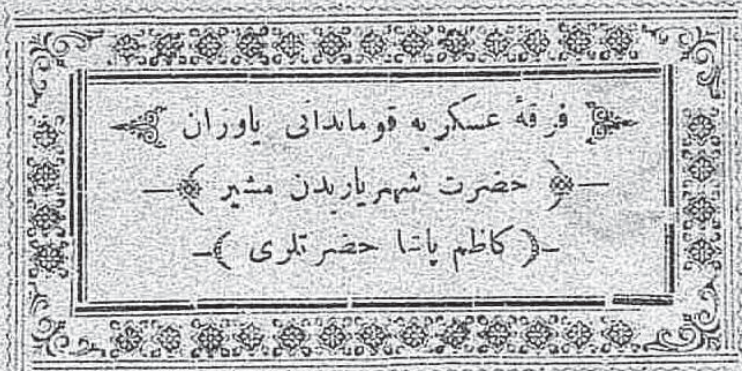 فرقهٔ عسکریه قوماندانی یاوران
حضرت شهریاریدن مشیر
کاظم پاشا حضرتلری